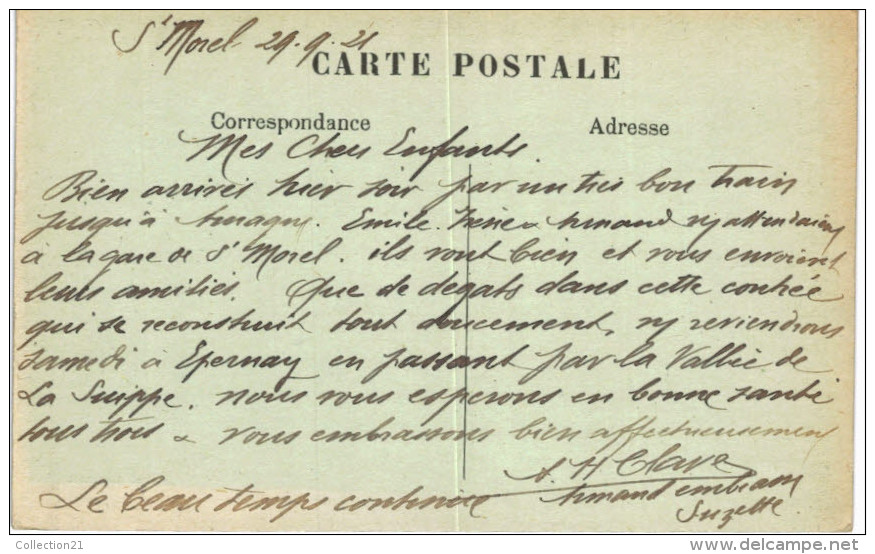 St Morel 29.9.21
CARTE POSTALE
Correspondance
Adresse
Mes Chers Enfants.
Bien arrivés hier soir par un très bon train
jusqu'à Amagne. Emile. Irène & Armand ns attendaient
à la gare de St Morel. ils vont bien et vous envoient
leurs amitiés. Que de degats dans cette contrée
qui se reconstruit tout doucement, ns reviendrons
samedi à Epernay en passant par la Vallée de
La Suippe. nous vous esperons en bonne santé
tous trois & vous embrassons bien affectueusement
A. H Clave
Le beau temps continue
Armand embrasse
Suzette
Collection21
www.delcampe.net